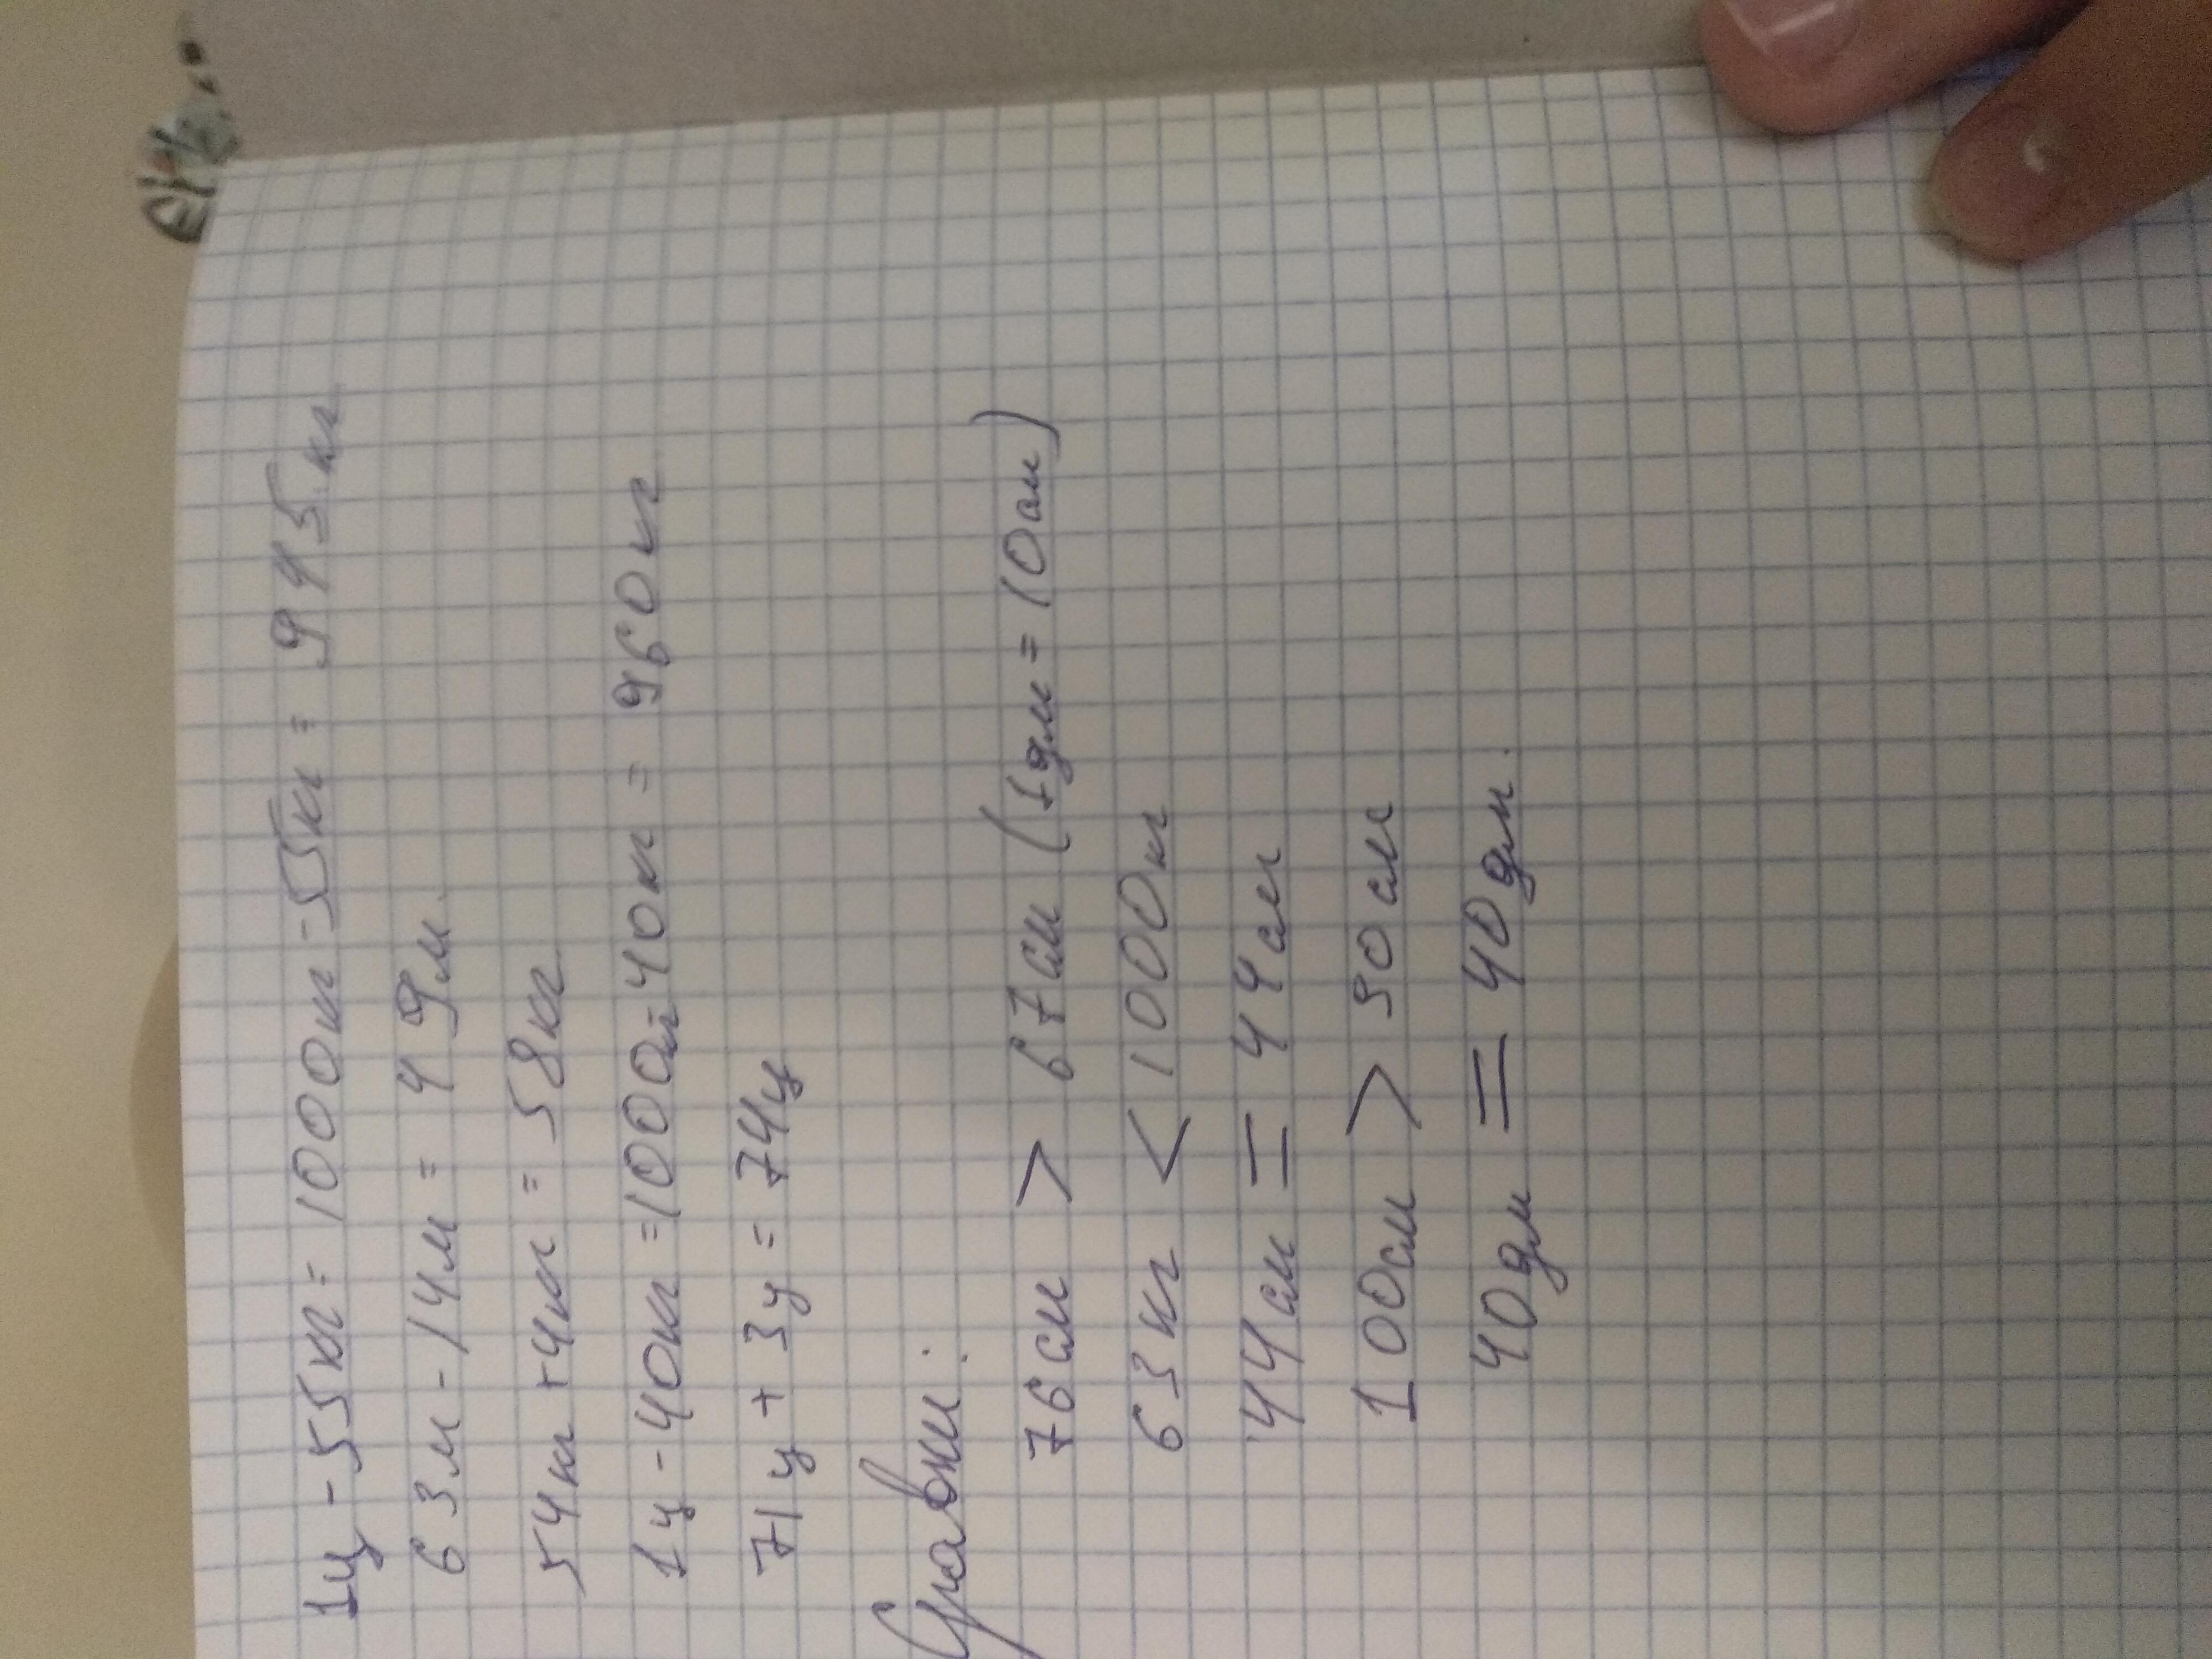 1ц - 55кг = 1000кг - 55кг = 945кг
63м - 14м = 49м.
54кг + 4кг = 58кг
1ц - 40кг = 1000кг - 40кг = 960кг
71ц + 3ц = 74ц
Сравни:
76см > 67см (1дм = 10см)
63кг < 1000кг
44см = 44см
100см > 90см
40дм = 40дм.